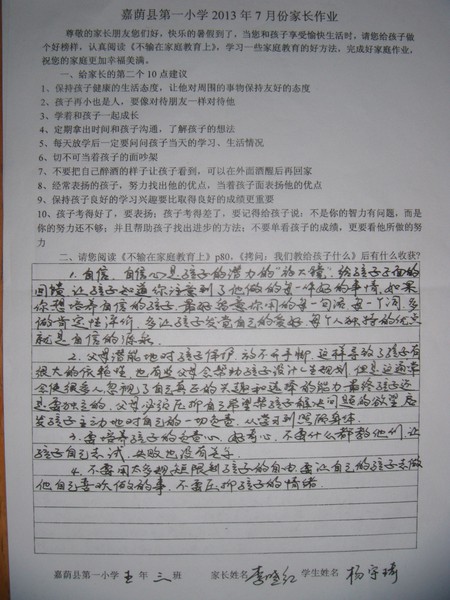 嘉荫县第一小学 2013 年 7 月份家长作业
尊敬的家长朋友您们好，快乐的暑假到了，当您和孩子享受愉快生活时，请您给孩子做
个好榜样，认真阅读《不输在家庭教育上》，学习一些家庭教育的好方法，完成好家庭作业，
祝您的家庭更加幸福美满。
一、给家长的第二个 10 点建议
1、保持孩子健康的生活态度，让他对周围的事物保持友好的态度
2、孩子再小也是人，要像对待朋友一样对待他
3、学着和孩子一起成长
4、定期拿出时间和孩子沟通，了解孩子的想法
5、每天放学后一定要问问孩子当天的学习、生活情况
6、切不可当着孩子的面吵架
7、不要把自己醉酒的样子让孩子看到，可以在外面酒醒后再回家
8、经常表扬的孩子，努力找出他的优点，当着孩子面表扬他的优点
9、保持孩子良好的学习兴趣要比取得良好的成绩更重要
10、孩子考得好了，要表扬；孩子考得差了，要记得给孩子说：不是你的智力有问题，而是
你的努力还不够；并且帮助孩子找出进步的方法；不要单看孩子的成绩，更要看他所做的努
力
二、请您阅读《不输在家庭教育上》p80，《拷问：我们教给孩子什么》后有什么收获？
1. 自信，自信心是孩子的潜力的"放大镜"，给孩子正面的
回馈，让孩子知道你注意到了他做的每一件好的事情，如果
你想培养自信的孩子，最好留意你用的每一句话，每一个词，多
做肯定性评价，多让孩子发意自己的爱好，每个人独特的优点
就是自信的源泉。
2. 父母潜能地对孩子保护，放不开手脚，这样导致了孩子有
很大的依赖性，也有些父母会帮助孩子设计人生规划，但是这通常
会使很多人忽视了自己真正的兴趣和选择的能力，最终孩子还
是要独立的，父母必须压抑自己希望帮孩子解决问题的欲望，启
发孩子主动地对自己的一切负责，从学习到照顾身体。
3. 要培养孩子的责任心，好奇心，不要什么都教他们，让
孩子自己去试，失败也没有关系。
4. 不要用太多规矩限制孩子的自由，要让自己的孩子去做
他自己喜欢做的事，不要压抑孩子的情绪。
嘉荫县第一小学 五 年 三 班 家长姓名 李 红 学生姓名 杨宇琦